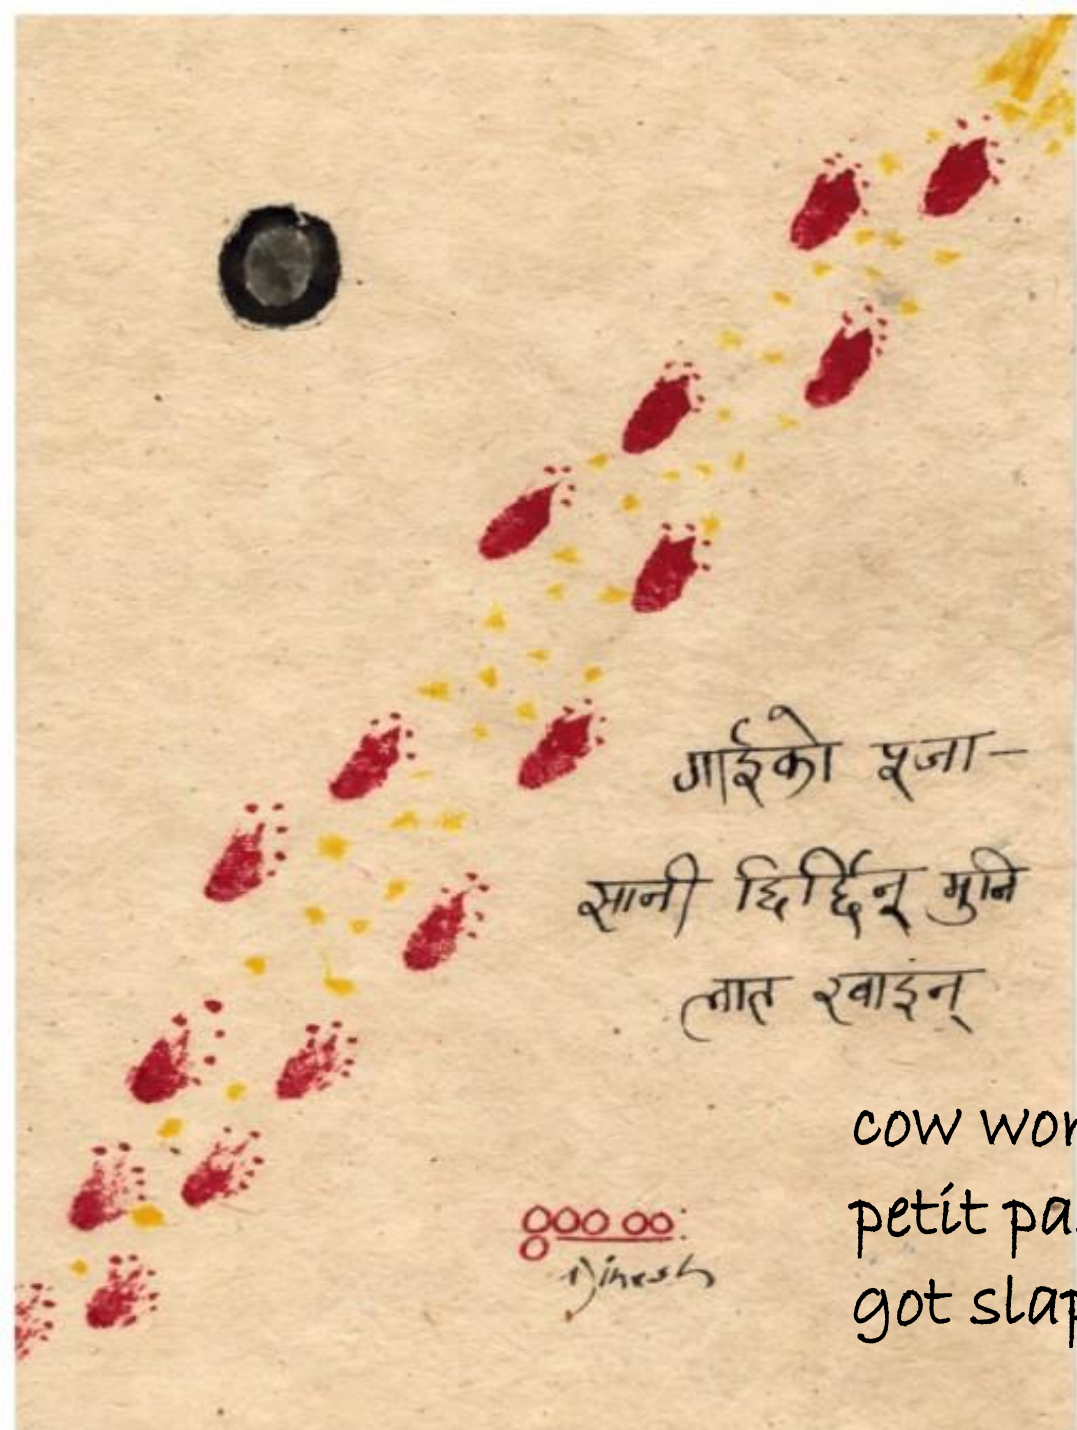 गाईको पूजा–
सानी छिर्छिन् मुनि
लात खाइन्
cow wor
petit pa
got slap
Dinesh